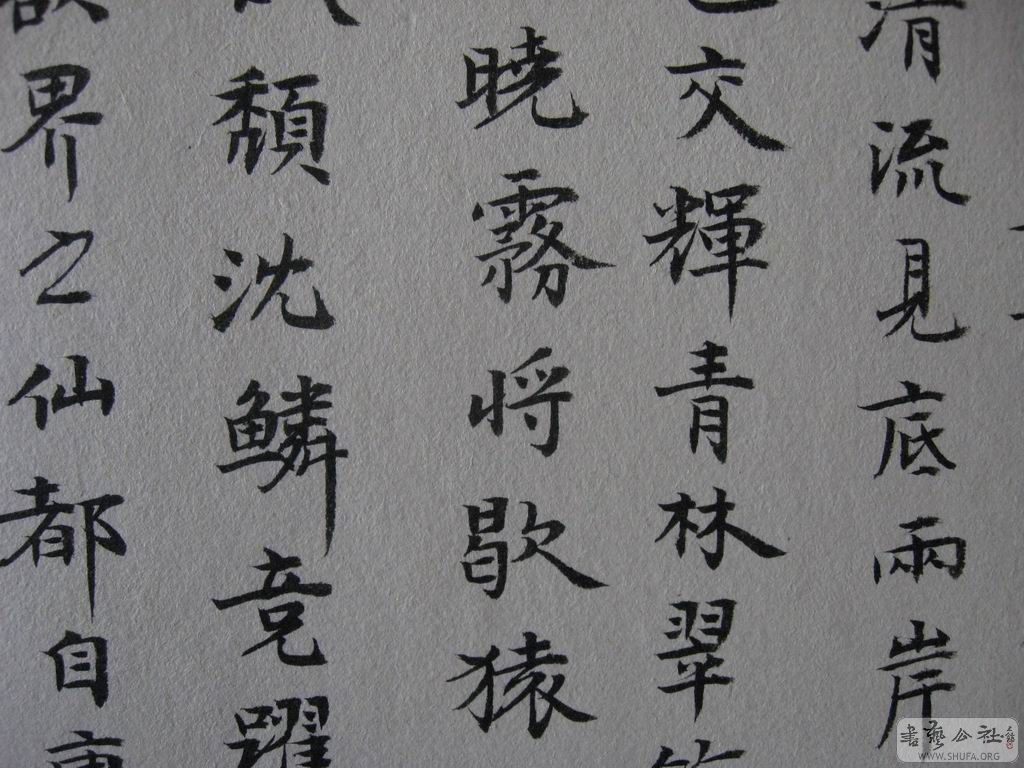 清流見底兩岸
交輝青林翠
曉霧将歇猿
頹沈鳞竞躍
界之仙都自
書藝公社
WWW.SHUFA.ORG